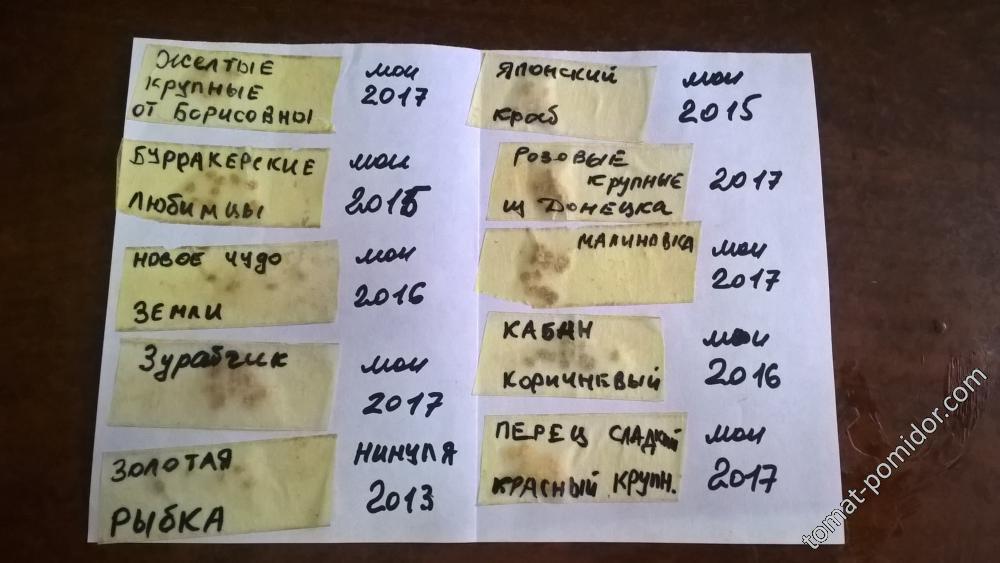 Желтые
крупные
от Борисовны
мои
2017
Бурракерские
любимцы
мои
2015
новое чудо
земли
мои
2016
Зурабчик
мои
2017
золотая
рыбка
нинуля
2013
японский
краб
мои
2015
розовые
крупные
из Донецка
2017
малиновка
мои
2017
кабан
коричневый
мои
2016
перец сладкий
красный крупн.
мои
2017
tomat-pomidor.com